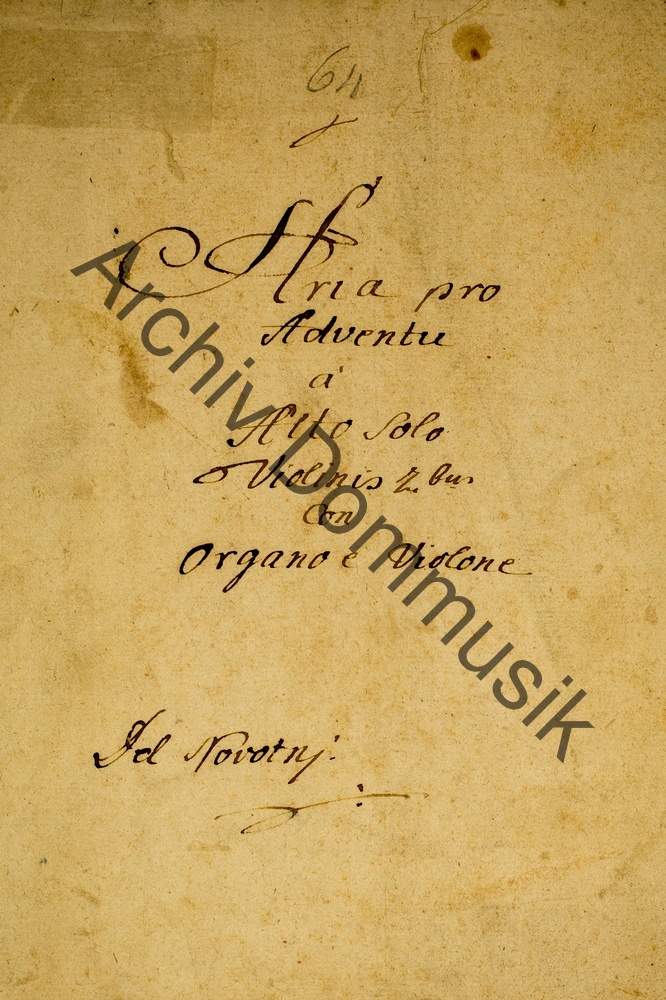 64
Aria pro
Adventu
a
Alto Solo
Violinis 2bus
Con
Organo e Violone
Del Novotnj.
Archiv Dommusik